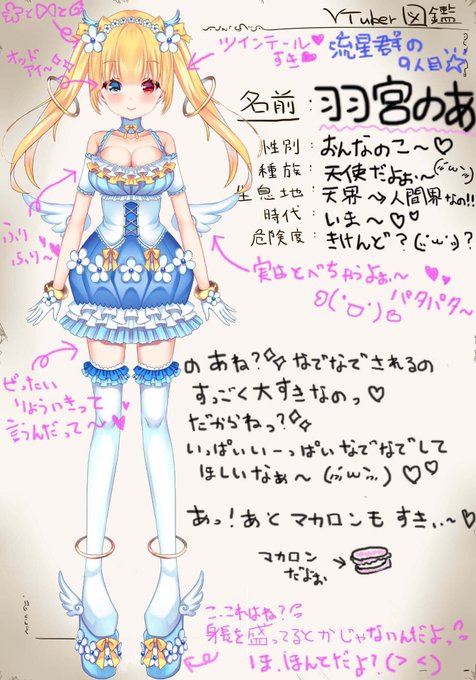 VTuber図鑑
ツインテール♡
すき♡
流星群の
9人目☆
オッド
アイ〜
名前：羽宮のあ
性別：おんなのこ〜♡
種族：天使だよぉ〜(*´ω`*)
生息地：天界→人間界なの!!
時代：いま〜♡♡
危険度：きけんど？(*´ω`*)？
ふり
ふり〜♡
実はとべちゃうよぉ〜♡♡
パタパタ〜
のあね？なでなでされるの
すっごく大すきなのっ♡
だからねっ？
いっぱいいーっぱいなでなでして
ほしいなぁ〜(*´ω`*)♡♡
ぜったい
りょういきって
言うんだって〜♡
あっ！あとマカロンもすきぃ〜♡
マカロン
だよぉ
→
こ、これはね？
身長を盛ってるとかじゃないんだよっ
ほ、ほんとだよ？(＞＜)